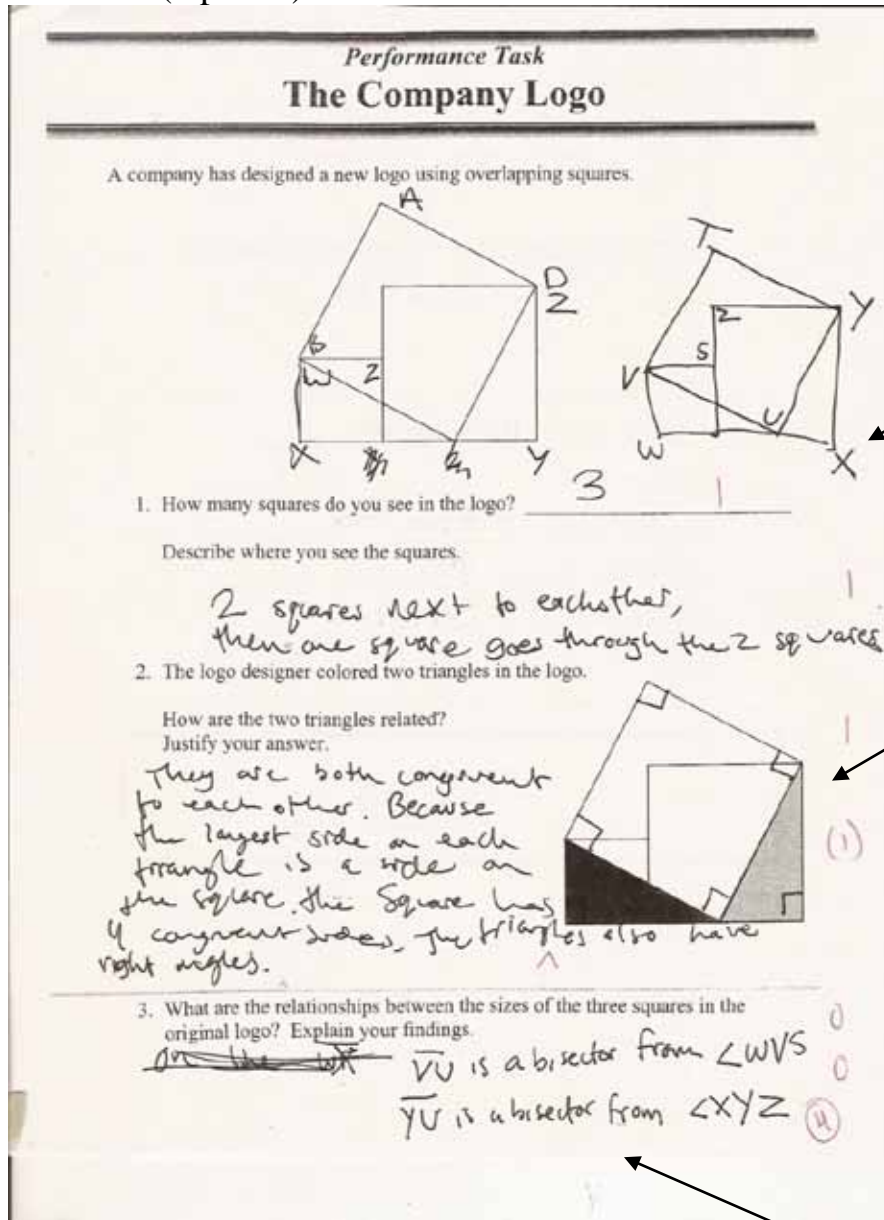 Performance Task
The Company Logo
A company has designed a new logo using overlapping squares.
A
D
Z
B
W
Z
X
Y
T
Z
Y
S
V
U
W
X
1. How many squares do you see in the logo? 3
1
Describe where you see the squares.
1
2 squares next to eachother,
then one square goes through the 2 squares
2. The logo designer colored two triangles in the logo.
How are the two triangles related?
1
Justify your answer.
They are both congruent
to each other. Because
the largest side on each
triangle is a side on
(1)
the square. the Square has
4 congruent sides. The triangles also have
right angles.
3. What are the relationships between the sizes of the three squares in the
0
original logo? Explain your findings.
VU is a bisector from ∠WVS
0
YU is a bisector from ∠XYZ
4